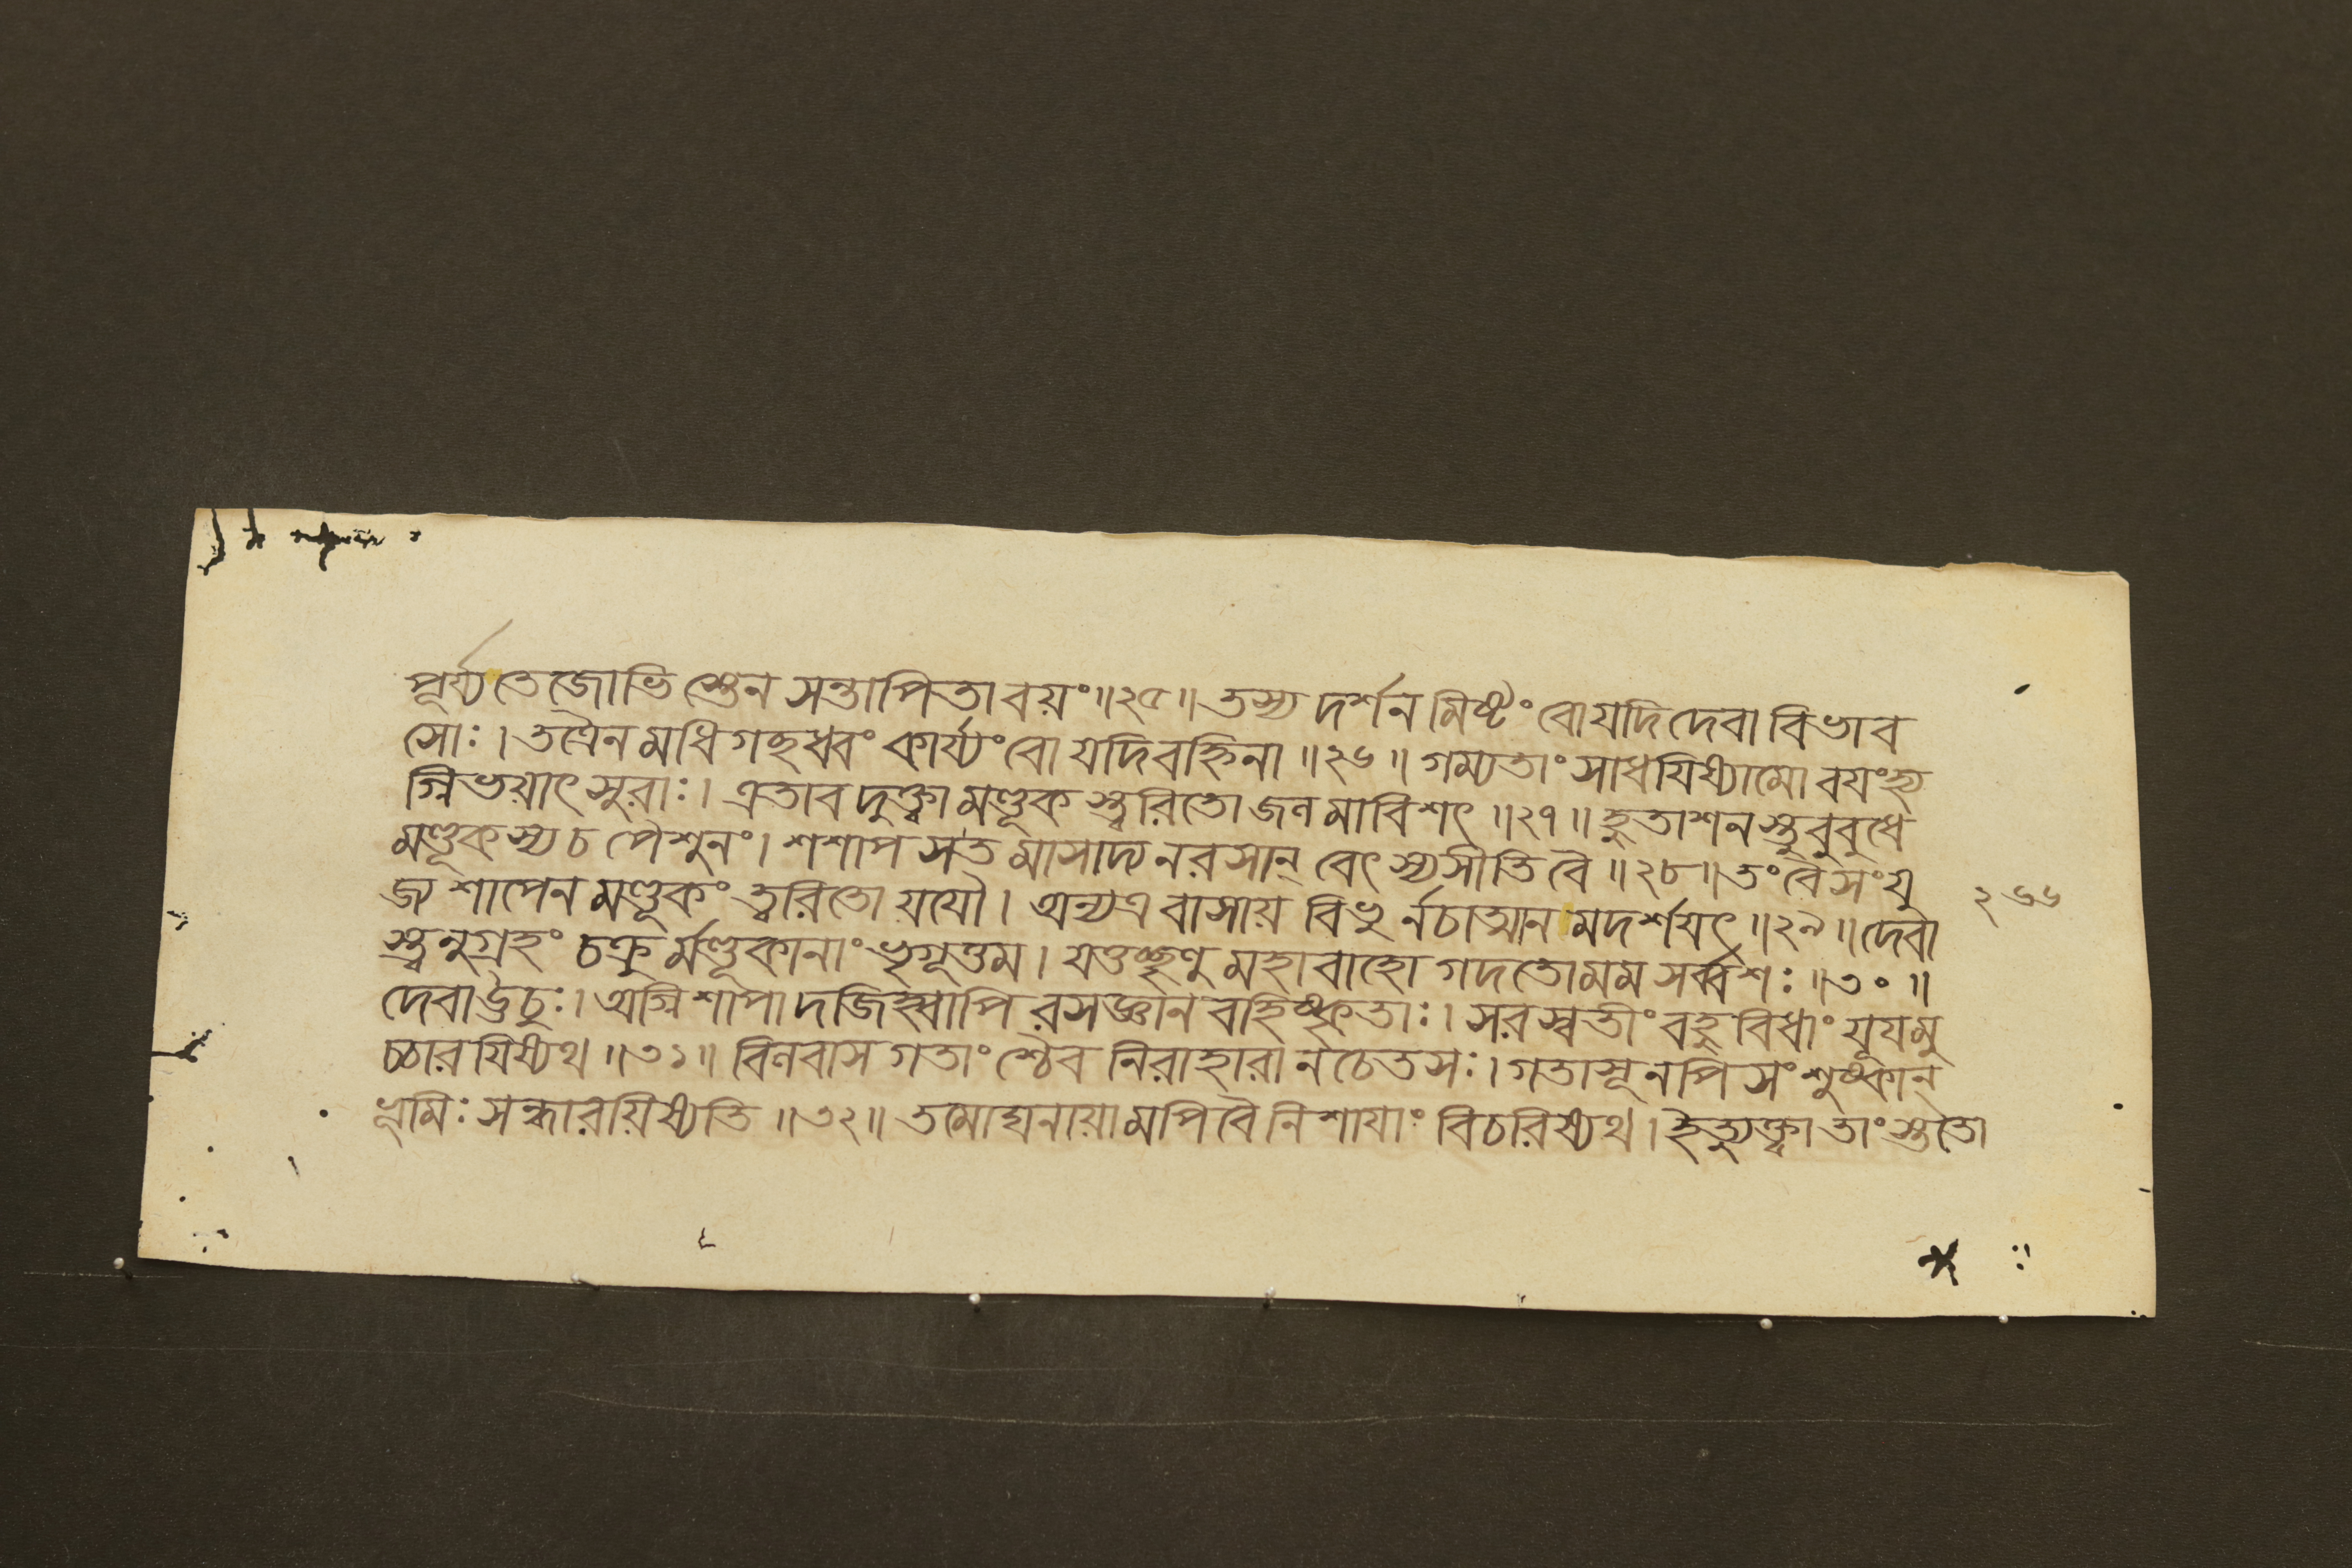 পূর্য্য তেজোভিস্তেন সন্তাপিতা বয়ং ॥২৫॥ তস্য দর্শনমিষ্টং বো যদি দেবা বিভাব
সোঃ । তত্রৈনমধিগচ্ছধ্বং কার্য্যং বো যদি বহ্নিনা ॥২৬॥ গম্যতাং সাধযিষ্যামো বযংহ্য
গ্নিভয়াৎ সুরাঃ । এতাবদুক্ত্বা মণ্ডূকস্ত্বরিতো জলমাবিশৎ ॥২৭॥ হুতাশনস্তু বুবুধে
মণ্ডূকস্য চ পৈশুনং । শশাপ স তমাসাদ্য ন রসান্ বেৎস্যসীতি বৈ ॥২৮॥ তং বৈ সংযু
জ্য শাপেন মণ্ডূকং ত্বরিতো যযৌ । অন্যত্র বাসায় বিভুর্ন চাত্মানমদর্শযৎ ॥২৯॥ দেবা
২৬৬
স্ত্বনুগ্রহং চক্রুর্মণ্ডূকানাং ভৃগূত্তম । যত্তচ্ছৃণু মহাবাহো গদতো মম সর্ব্বশঃ ॥৩০॥
দেবা ঊচুঃ । অগ্নিশাপাদজিহ্বাপি রসজ্ঞানবহিষ্কৃতাঃ । সরস্বতীং বহুবিধাং যূযমু
চ্চারযিষ্যথ ॥৩১॥ বিলবাসগতাংশ্চৈব নিরাহারানচেতসঃ । গতাসূনপি সংশুষ্কান্
ভূমিঃ সন্ধারয়িষ্যতি ॥৩২॥ তমোঘনায়ামপি বৈ নিশাযাং বিচরিষ্যথ । ইত্যুক্ত্বা তাংস্ততো